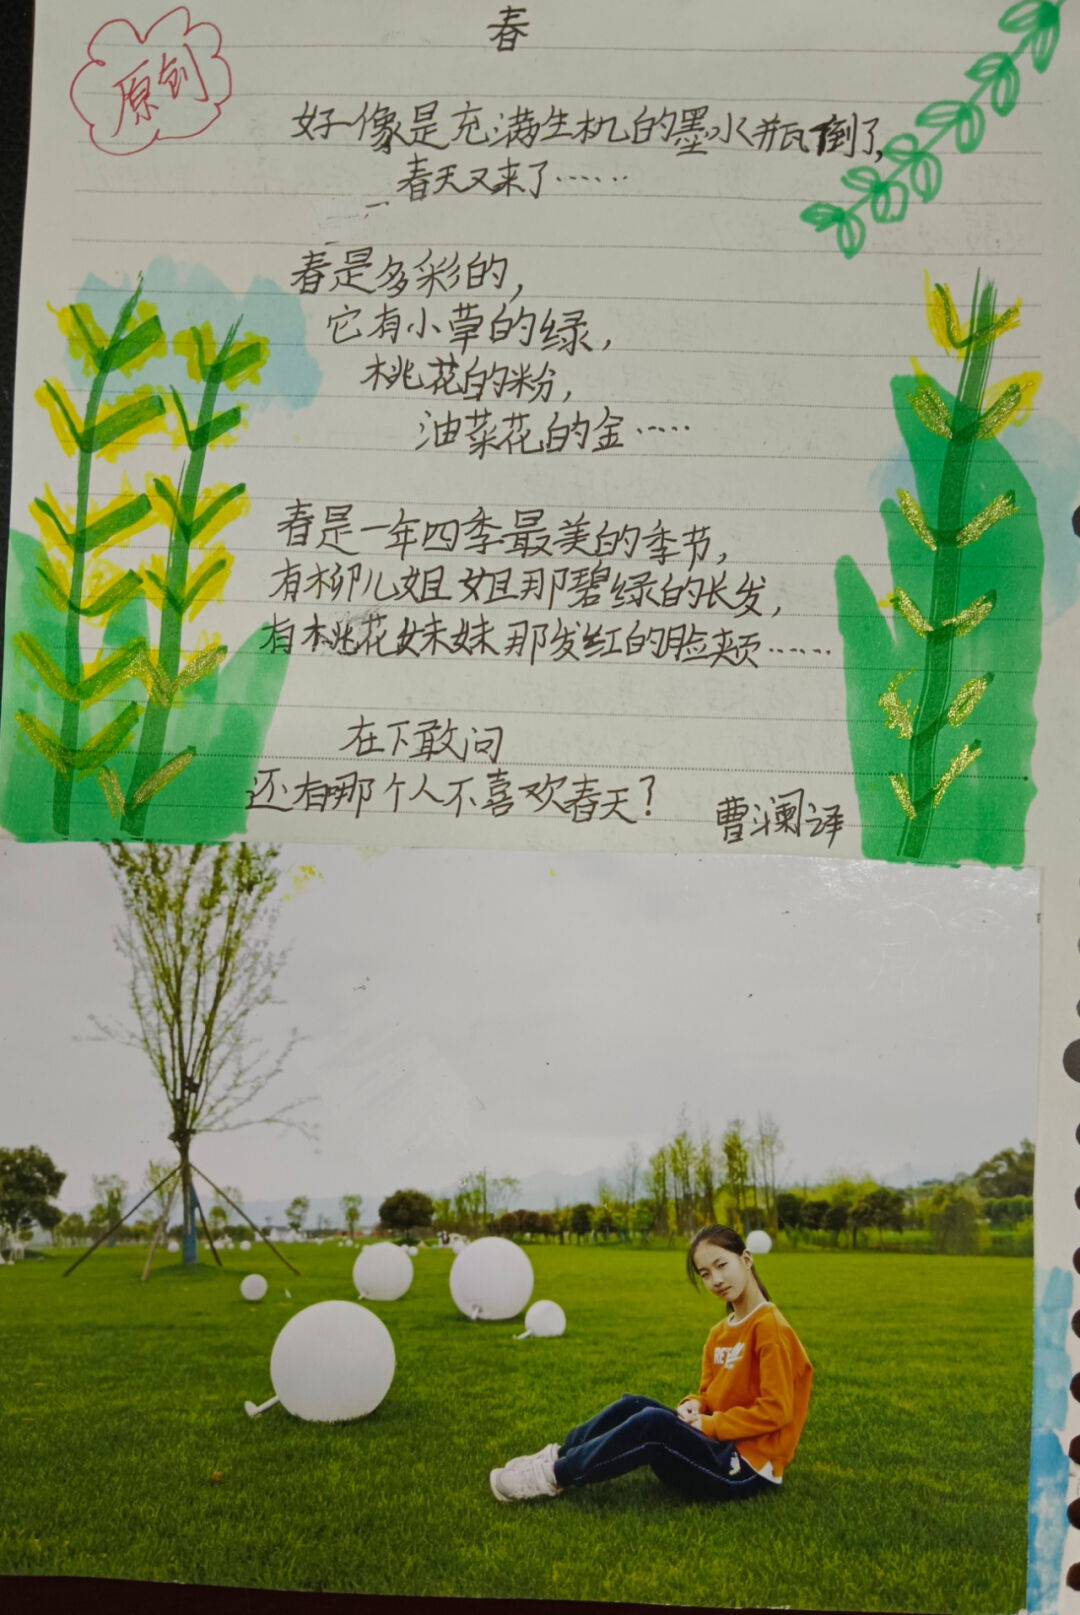 春
原创
好像是充满生机的墨水瓶倒了,
春天又来了……
春是多彩的,
它有小草的绿,
桃花的粉,
油菜花的金……
春是一年四季最美的季节,
有柳儿姐姐那碧绿的长发,
有桃花妹妹那发红的脸颊……
在下敢问
还有哪个人不喜欢春天?
曹斓译